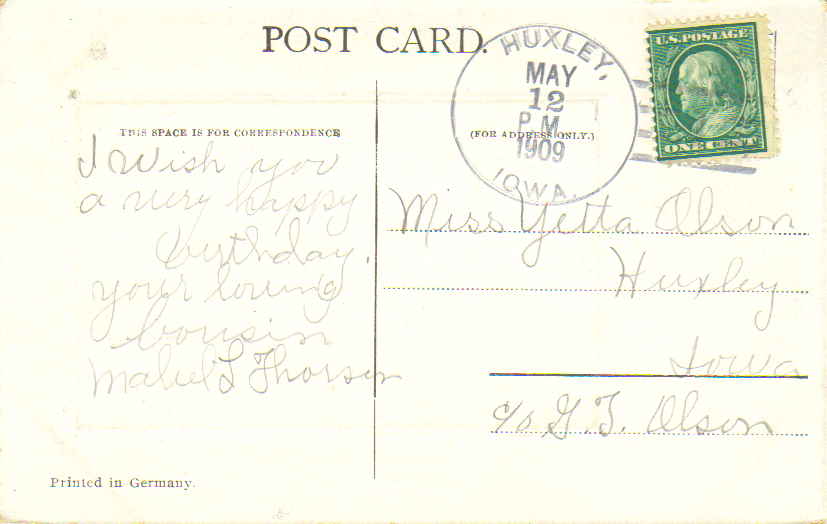 POST CARD.
HUXLEY,
MAY
12
P M
1909
IOWA.
U.S. POSTAGE
ONE CENT
THIS SPACE IS FOR CORRESPONDENCE
(FOR ADDRESS ONLY.)
I wish you
a very happy
birthday.
your loving
cousin
Mabel L Thorson
Miss Yetta Olson
Huxley
Iowa
c/o G. T. Olson
Printed in Germany.